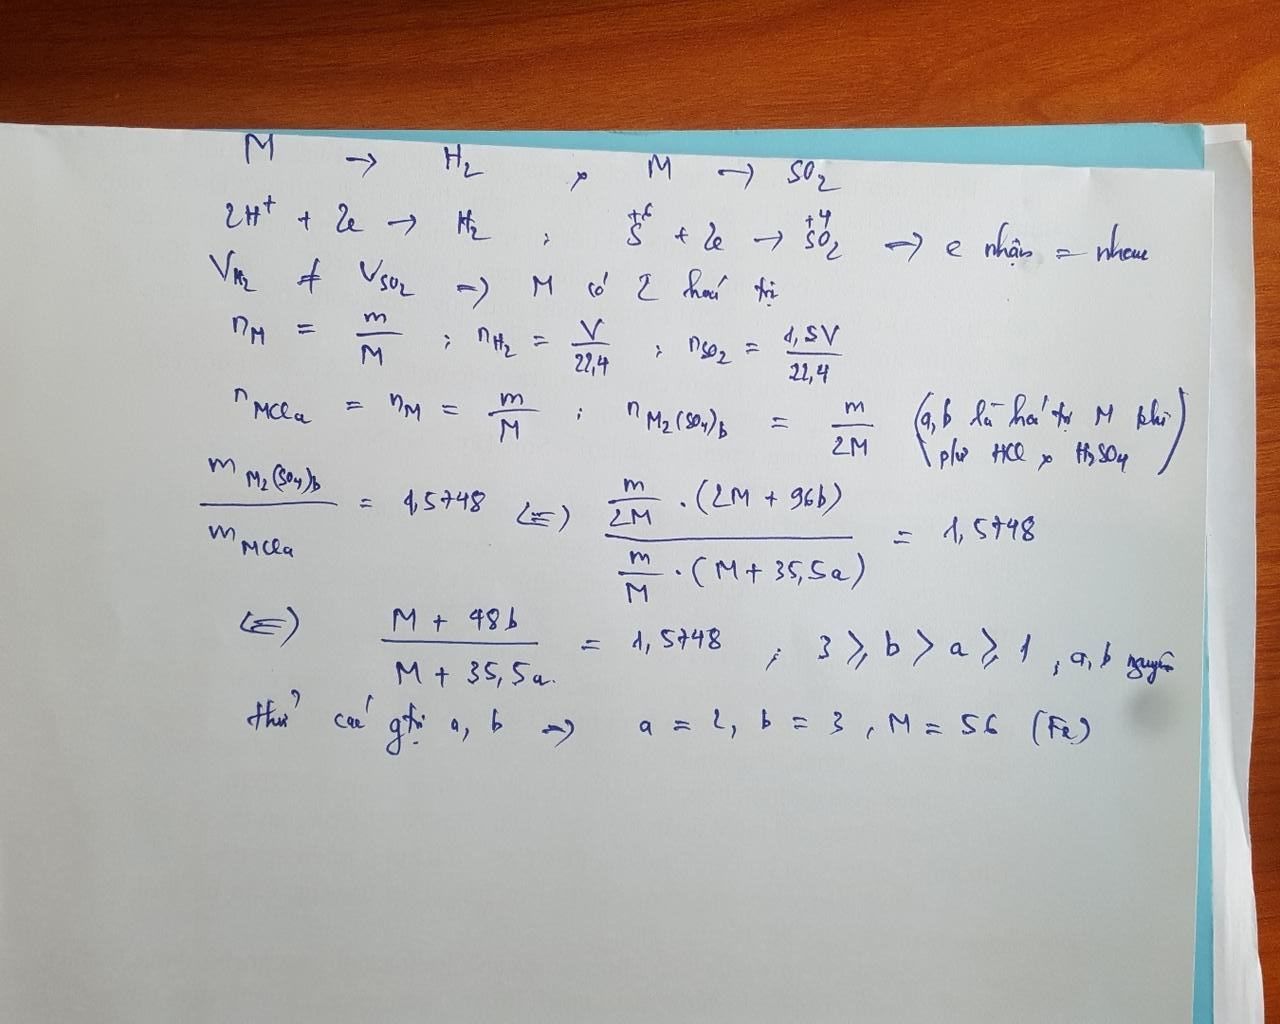 M → H₂ , M → SO₂
2H⁺ + 2e → H₂ ; S⁺⁶ + 2e → S⁺⁴O₂ => e nhận = nhau
V_H₂ ≠ V_SO₂ => M có 2 hoá trị
n_M = m/M ; n_H₂ = V/22,4 ; n_SO₂ = 1,5V/22,4
n_MClₐ = n_M = m/M ; n_M₂(SO₄)_b = m/2M (a,b là hoá trị M khi pứ HCl, H₂SO₄)
m_M₂(SO₄)_b / m_MClₐ = 1,5748 <=> (m/2M . (2M + 96b)) / (m/M . (M + 35,5a)) = 1,5748
<=> (M + 48b) / (M + 35,5a.) = 1,5748 ; 3 ≥ b > a ≥ 1 , a, b nguyên
thử các gtrị a, b => a = 2, b = 3 , M = 56 (Fe)